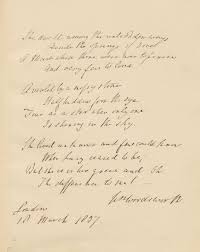 She dwelt among the untrodden ways
Beside the springs of Dove
A Maid whom there were none to praise
And very few to love.
A violet by a mossy stone
Half hidden from the eye
Fair as a star when only one
Is shining in the sky.
She lived unknown and few could know
When Lucy ceased to be;
But she is in her grave and Oh
The difference to me!
Wm Wordsworth
London
18 March 1837